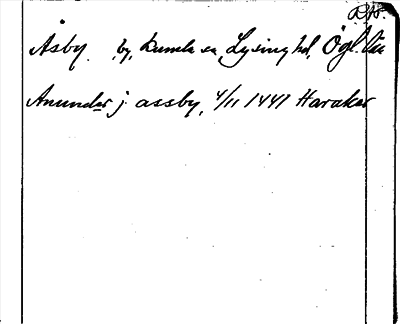 Åsby. by, Kumla sn, Lysing hd, Ögl. län
Anundær j assby, 4/11 1447 Haraker